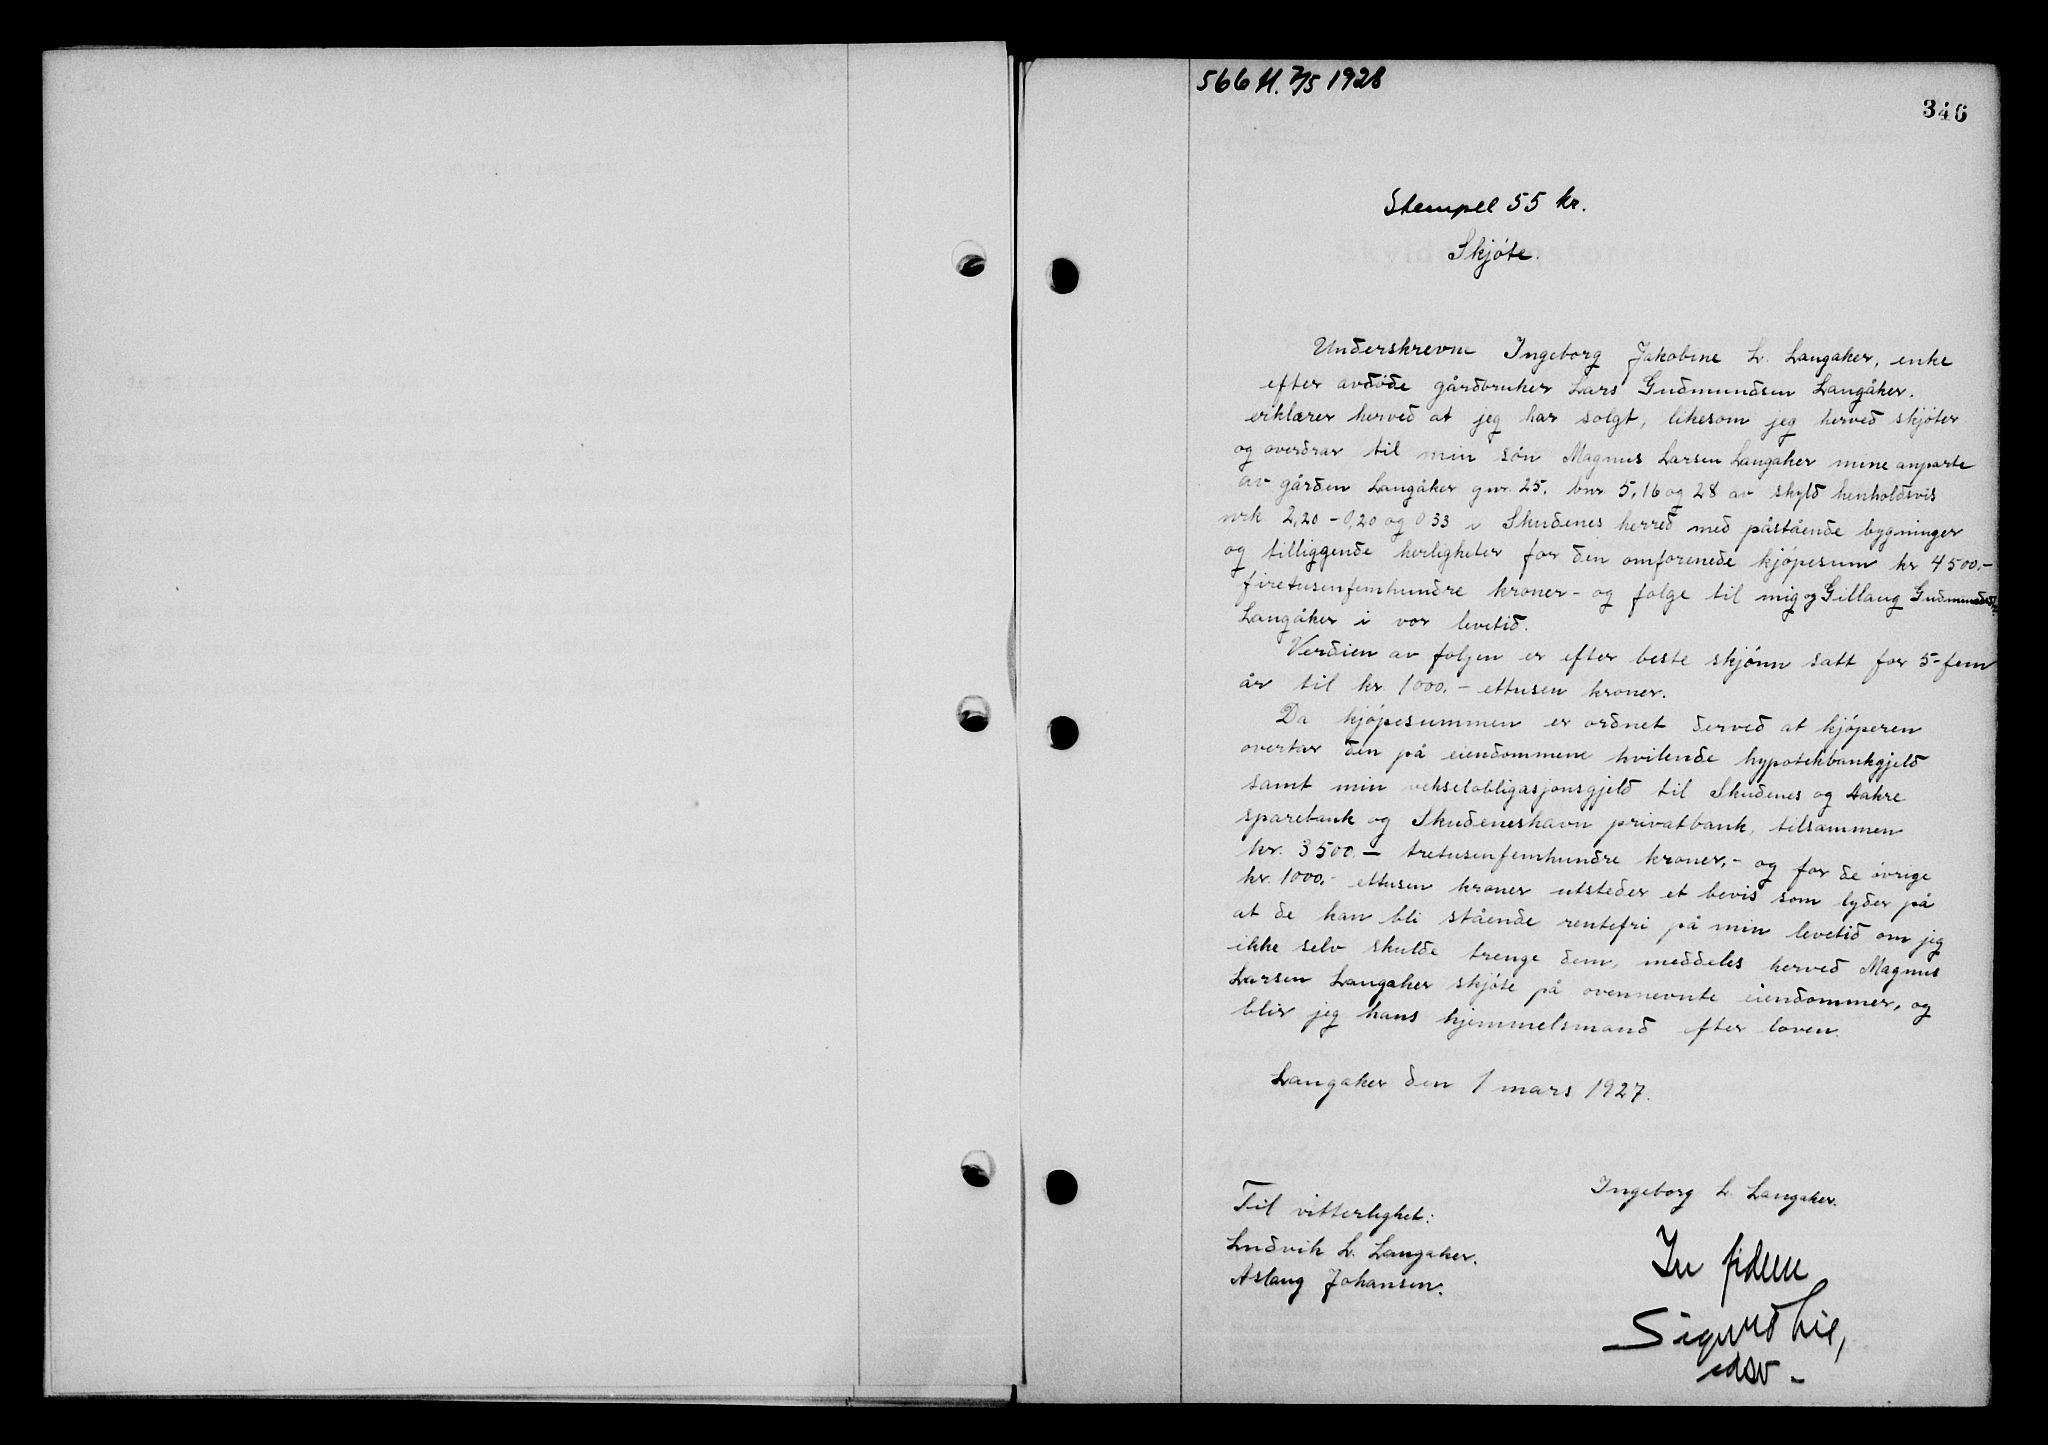 566 H. 7/5 1928
346
Stempel 55 kr.
Skjøte.
Underskrevne Ingeborg Jakobine L. Langaker, enke
efter avdøde gårdbruker Lars Gudmundsen Langåker,
erklærer herved at jeg har solgt, likesom jeg herved skjøter
og overdrar til min søn Magnus Larsen Langaker mine anparte
av gården Langåker gnr. 25. bnr 5, 16 og 28 av skyld henholdsvis
mrk 2,20 - 0,20 og 0 33 i Skudenes herred med påstående bygninger
og tilliggende herligheter for den omforenede kjøpesum kr 4500.-
firetusenfemhundre kroner - og følge til mig og Gillaug
Langåker i vor levetid.
Verdien av føljen er efter beste skjønn satt for 5-fem
år til kr. 1000.- ettusen kroner.
Da kjøpesummen er ordnet derved at kjøperen
overtar den på eiendommene hvilende hypotekbankgjeld
samt min vekselobligasjonsgjeld til Skudenes og Aakre
sparebank og Skudeneshavn privatbank, tilsammen
kr. 3500.- tretusenfemhundre kroner,- og for de øvrige
kr. 1000.- ettusen kroner utsteder et bevis som lyder på
at de kan bli stående rentefri på min levetid om jeg
ikke selv skulde trenge dem, meddeles herved Magnus
Larsen Langaker skjøte på ovennevnte eiendommer, og
blir jeg hans hjemmelsmand efter loven.
Langaker den 1 mars 1927.
Ingeborg L. Langaker.
Til vitterlighet:
Ludvik L. Langaker.
Aslaug Johansen.
In fidem
Sigurd Lie,
edsv -